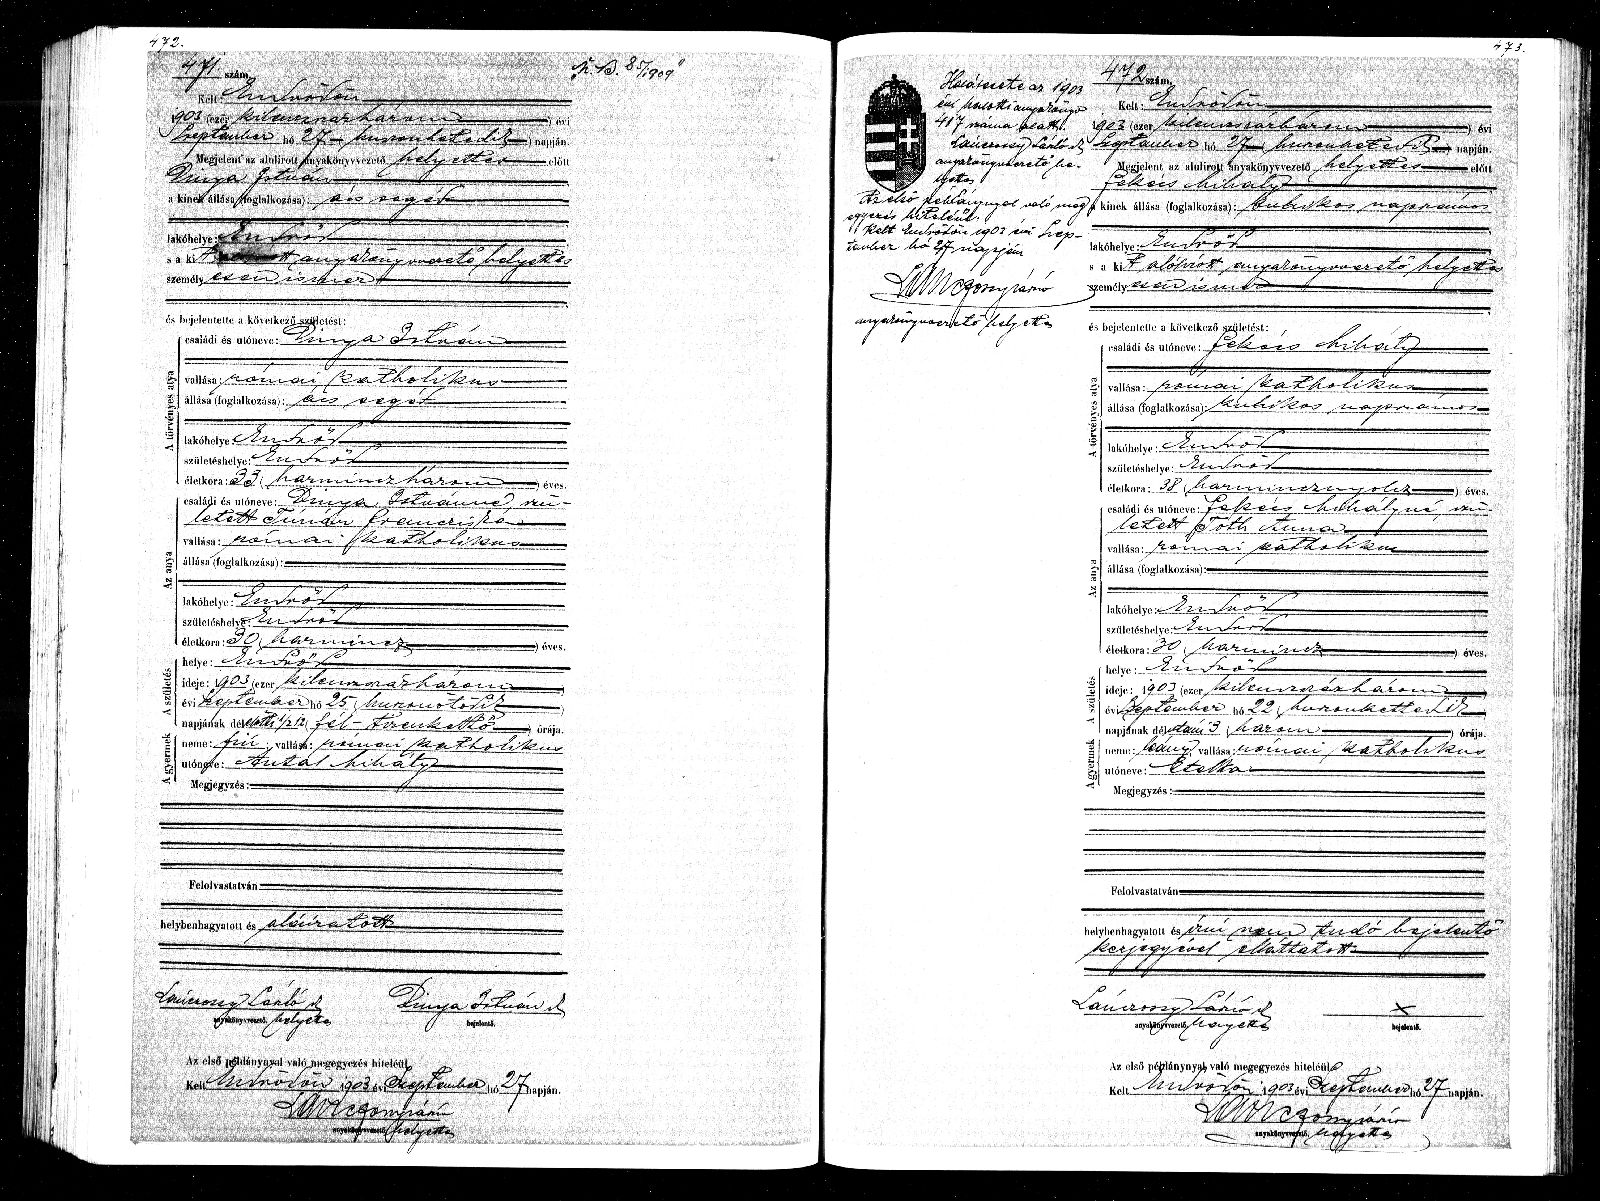 472.
471. szám.
K. B. 85/1909
Kelt: Endrődön
1903 (ezer kilenczszázhárom) évi
Szeptember hó 27 huszonhetedik) napján.
Megjelent az alulirott anyakönyvvezető helyettes előtt
Dinya István
a kinek állása (foglalkozása): ács segéd
lakóhelye: Endrőd
s a kit alólirott anyakönyvvezető helyettes
személyesen ismer
és bejelentette a következő születést:
A törvényes atya
családi és utóneve: Dinya István
vallása: római katholikus
állása (foglalkozása): ács segéd
lakóhelye: Endrőd
születéshelye: Endrőd
életkora: 33 (harminczhárom) éves.
Az anya
családi és utóneve: Dinya Istvánné, szü-
letett Tímár Francziska
vallása: római katholikus
állása (foglalkozása):
lakóhelye: Endrőd
születéshelye: Endrőd
életkora: 30 (harmincz) éves.
A születés
helye: Endrőd
ideje: 1903 (ezer kilenczszázhárom)
évi Szeptember hó 25 (huszonötödik)
napjának délelőtti 1/2 12 (fél-tizenkettő) órája.
A gyermek
neme: fiú vallása: római katholikus
utóneve: Antal Mihály
Megjegyzés:
Felolvastatván
helybenhagyatott és aláiratott
Dinya István
anyakönyvvezető. helyettes
bejelentő.
Az első példánynyal való megegyezés hiteléül
Kelt Endrődön 1903 évi Szeptember hó 27 napján.
anyakönyvvezető. helyettes
473.
Hozátéve az 1903
évi halotti anyakönyv
417 száma alatt.
anyakönyvvezető he-
lyettes
Az első példánynyal való meg
egyezés hiteléül.
Kelt Endrődön 1903 évi Szep-
tember hó 27 napján
anyakönyvvezető helyettes
472 szám.
Kelt: Endrődön
1903 (ezer kilenczszázhárom) évi
Szeptember hó 27 huszonhetedik napján.
Megjelent az alulirott anyakönyvvezető helyettes előtt
Fekécs Mihály
a kinek állása (foglalkozása): kubikos napszámos
lakóhelye: Endrőd
s a kit alólirott anyakönyvvezető helyettes
személyesen ismer
és bejelentette a következő születést:
A törvényes atya
családi és utóneve: Fekécs Mihály
vallása: római katholikus
állása (foglalkozása): kubikos napszámos
lakóhelye: Endrőd
születéshelye: Endrőd
életkora: 38 (harmincznyolcz) éves.
Az anya
családi és utóneve: Fekécs Mihályné, szü-
letett Tóth Anna
vallása: római katholikus
állása (foglalkozása):
lakóhelye: Endrőd
születéshelye: Endrőd
életkora: 30 (harmincz) éves.
A születés
helye: Endrőd
ideje: 1903 (ezer kilenczszázhárom)
évi Szeptember hó 22 (huszonkettedik)
napjának délutáni 3 (három) órája.
A gyermek
neme: leány, vallása: római katholikus
utóneve: Etelka
Megjegyzés:
Felolvastatván
helybenhagyatott és írni nem tudó bejelentő
kézjegyével elláttatott
X
anyakönyvvezető. helyettes
bejelentő.
Az első példánynyal való megegyezés hiteléül
Kelt Endrődön 1903 évi Szeptember hó 27 napján.
anyakönyvvezető. helyettes